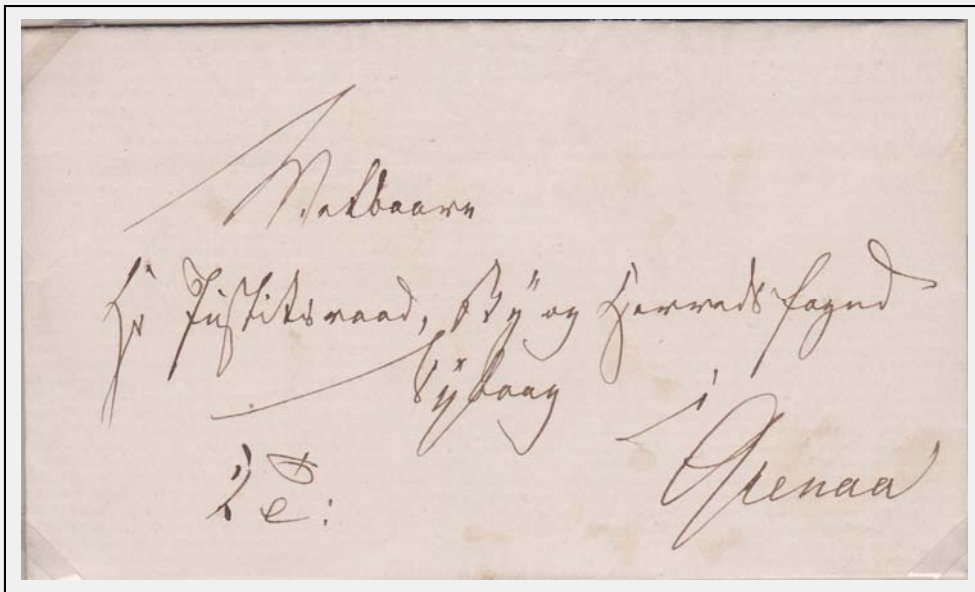 Velbaarne
Hr Justitsraad, By og Herredsfoged
i
Grenaa